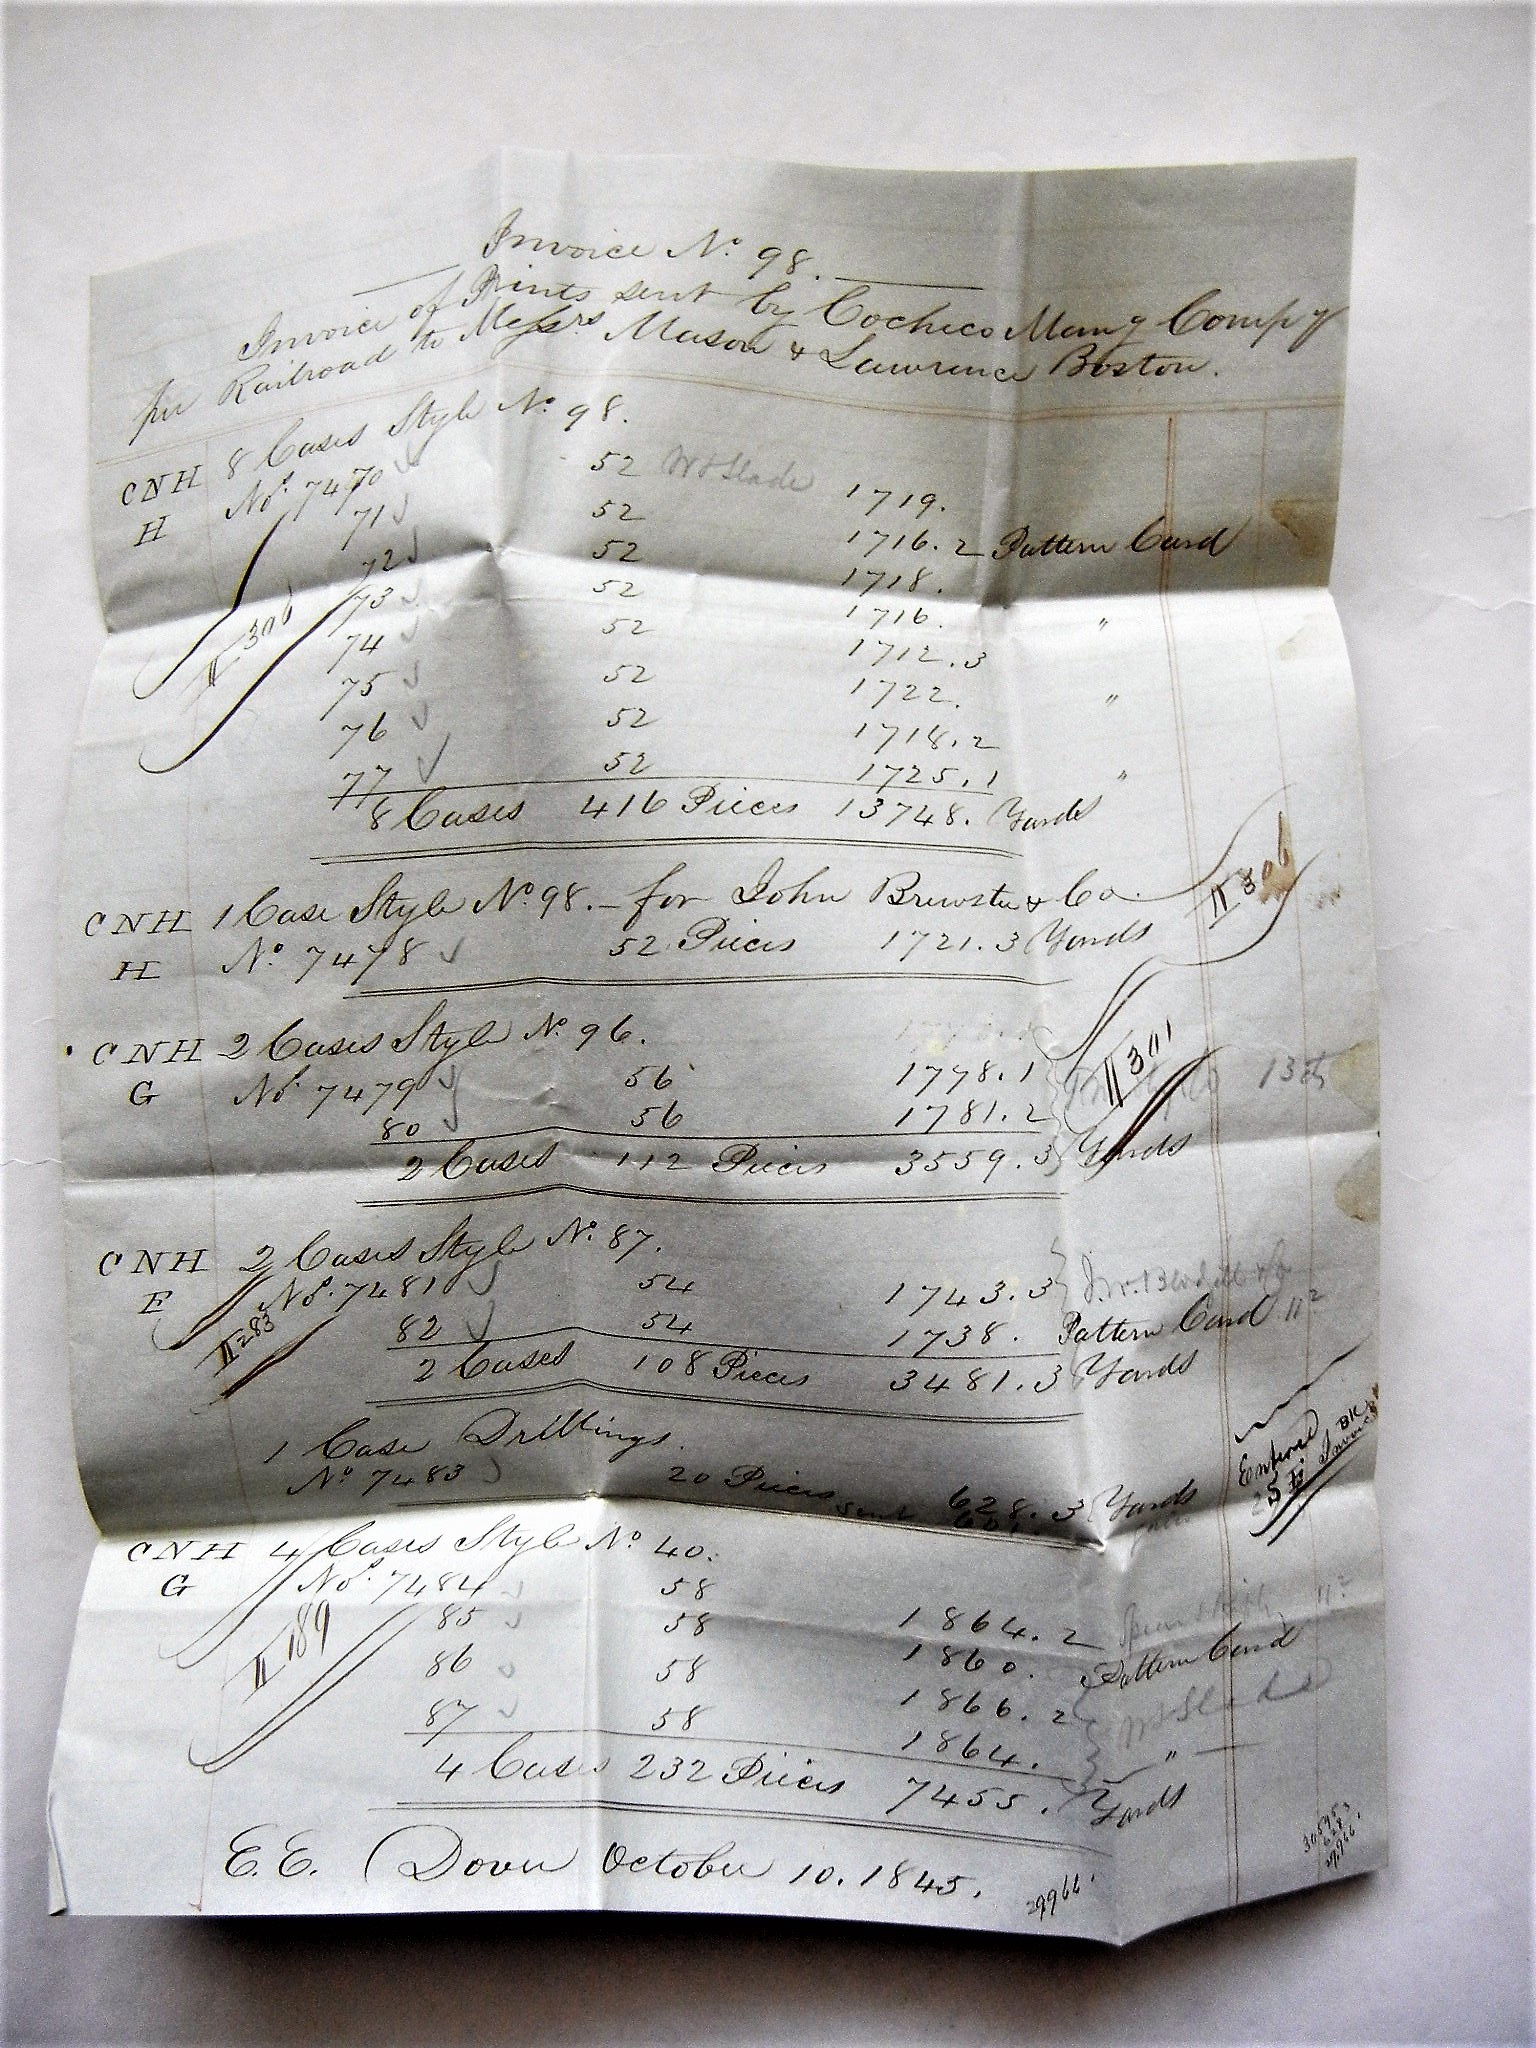 Invoice No. 98.
Invoice of Prints sent by Cocheco Manfg Compy
per Railroad to Messrs Mason & Lawrence Boston.
CNH 8 Cases Style No. 98.
H Nos. 7470 52 Wt Slade 1719.
71 52 1716.2 Pattern Card
72 52 1718.
73 52 1716. "
74 52 1712.3
75 52 1722. "
76 52 1718.2
77 52 1725.1 "
8 Cases 416 Pieces 13748. Yards
306
CNH 1 Case Style No. 98. - for John Brewster & Co.
H No. 7478 52 Pieces 1721.3 Yards
306
CNH 2 Cases Style No. 96.
G Nos. 7479 56 1778.1
80 56 1781.2
2 Cases 112 Pieces 3559.3 Yards
301 13th
CNH 2 Cases Style No. 87.
E Nos. 7481 54 1743.3
82 54 1738. Pattern Card
2 Cases 108 Pieces 3481.3 Yards
283
1 Case Drillings.
No. 7483 20 Pieces 628.3 Yards
sent
Entered BK
Invoice
CNH 4 Cases Style No. 40.
G Nos. 7484 58 1864.2
85 58 1860. Pattern Card
86 58 1866.2 Wt Slade
87 58 1864. "
4 Cases 232 Pieces 7455. Yards
189
E.E. Dover October 10. 1845.
29966.